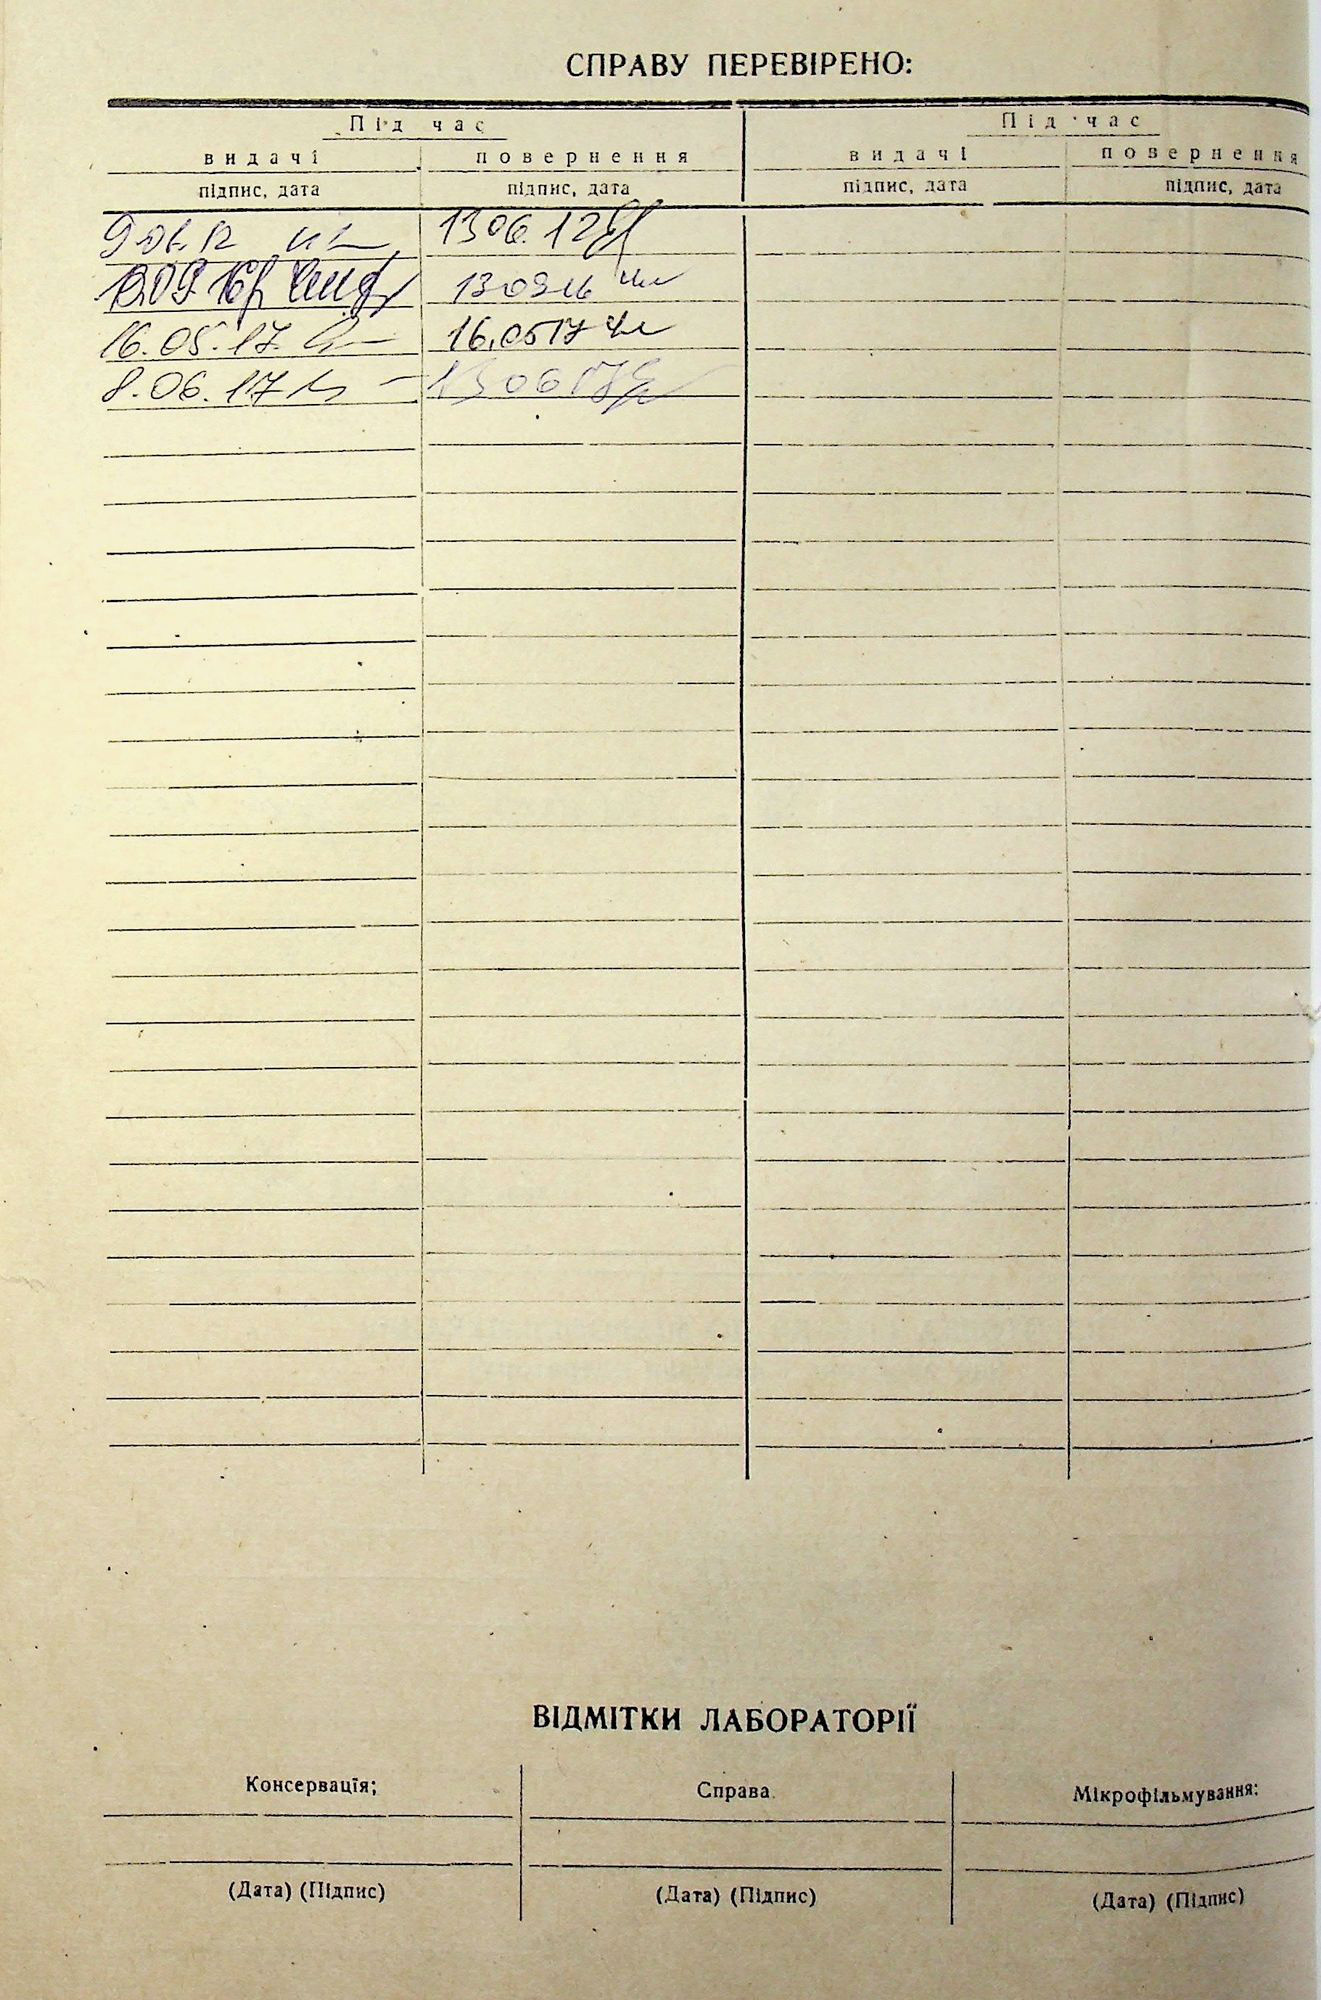 СПРАВУ ПЕРЕВІРЕНО:
Під час Під час
видачі повернення видачі повернення
підпис, дата підпис, дата підпис, дата підпис, дата
9.06.12 13 06.12
13.09 16 13 09 16
16.05.17. 16.05 17
8.06.17 13 06 17
ВІДМІТКИ ЛАБОРАТОРІЇ
Консервація; Справа. Мікрофільмування:
(Дата) (Підпис) (Дата) (Підпис) (Дата) (Підпис)